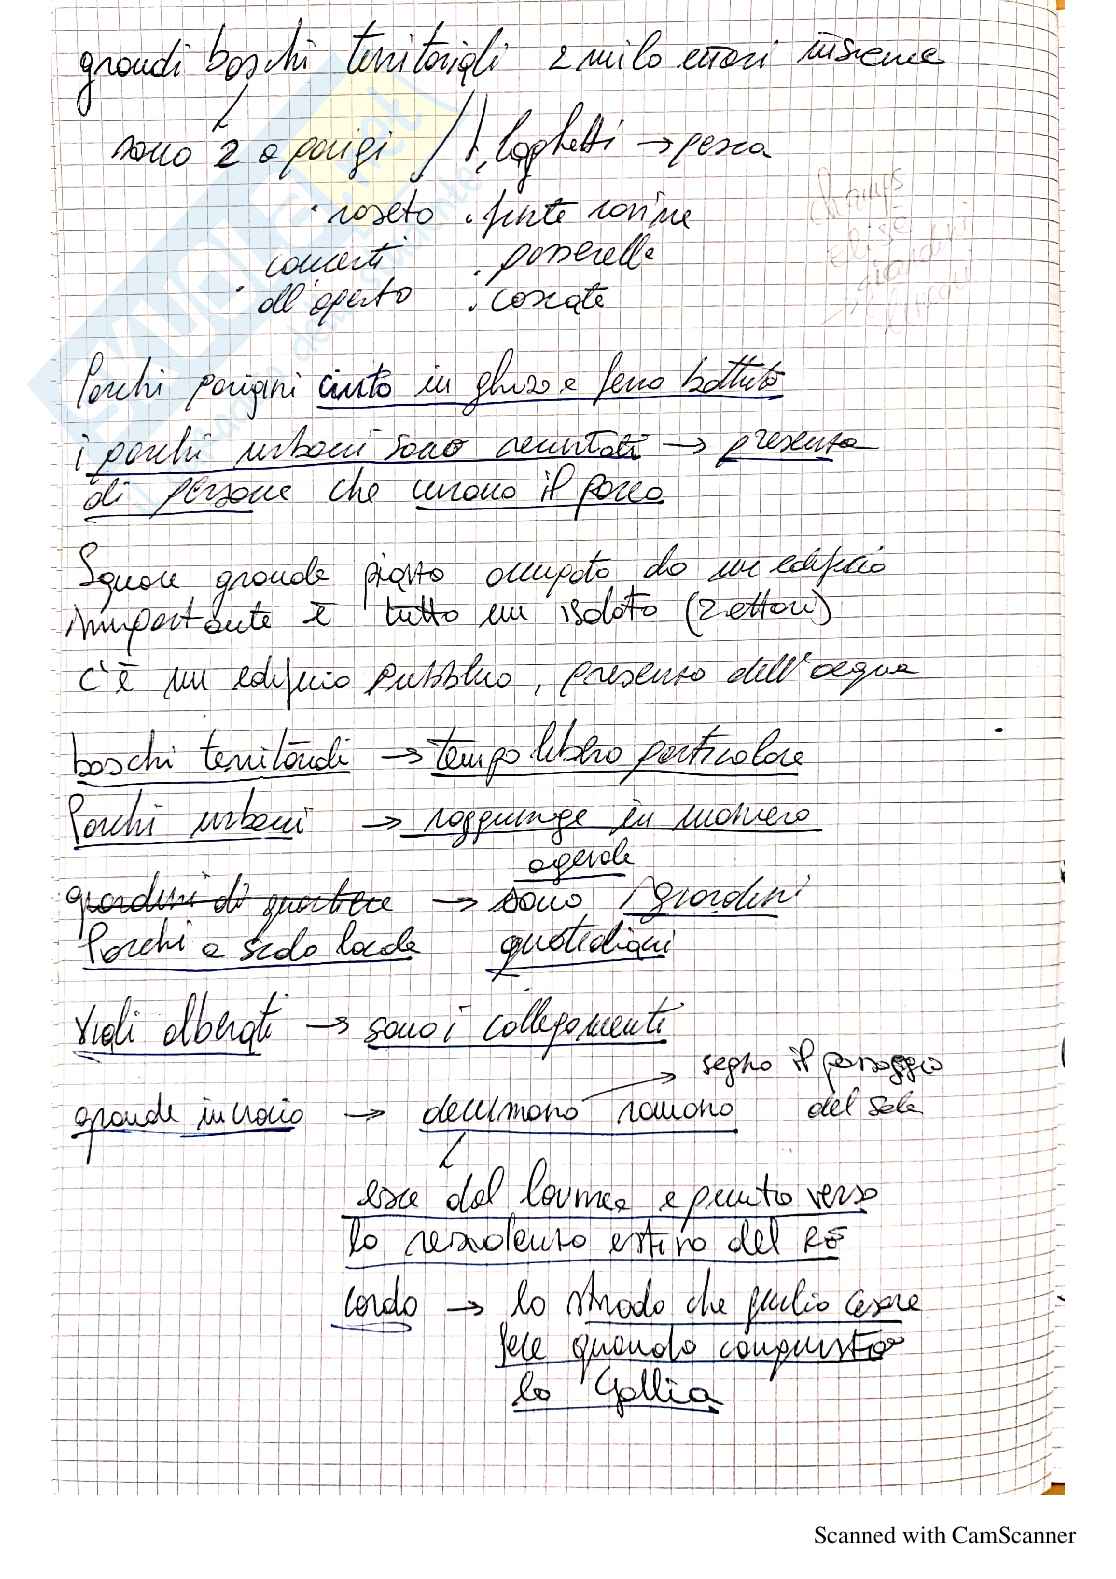 grandi boschi territoriali 2 mila ettari insieme
sono 2 a parigi
laghetti → pesca
· roseto · finte rovine
concerti · passerelle
· all'aperto · cascate
Champs
elisé
giardini
Parchi parigini cinto in ghisa e ferro battuto
i parchi urbani sono recintati → presenza
di persone che curano il parco
Square grande piazza occupata da un edificio
importante è tutto un isolato (2 ettari)
c'è un edificio pubblico, presenza dell'acqua
boschi territoriali → tempo libero particolare
Parchi urbani → raggiunge in maniera
agevole
giardini di quartiere → sono i giardini
Parchi a scala locale quotidiani
viali alberati → sono i collegamenti
segna il passaggio
grande incrocio → decumano romano del sole
esce dal Louvre e punta verso
la residenza estiva del RE
cardo → la strada che giulio cesare
fece quando conquistò
la Gallia
Scanned with CamScanner